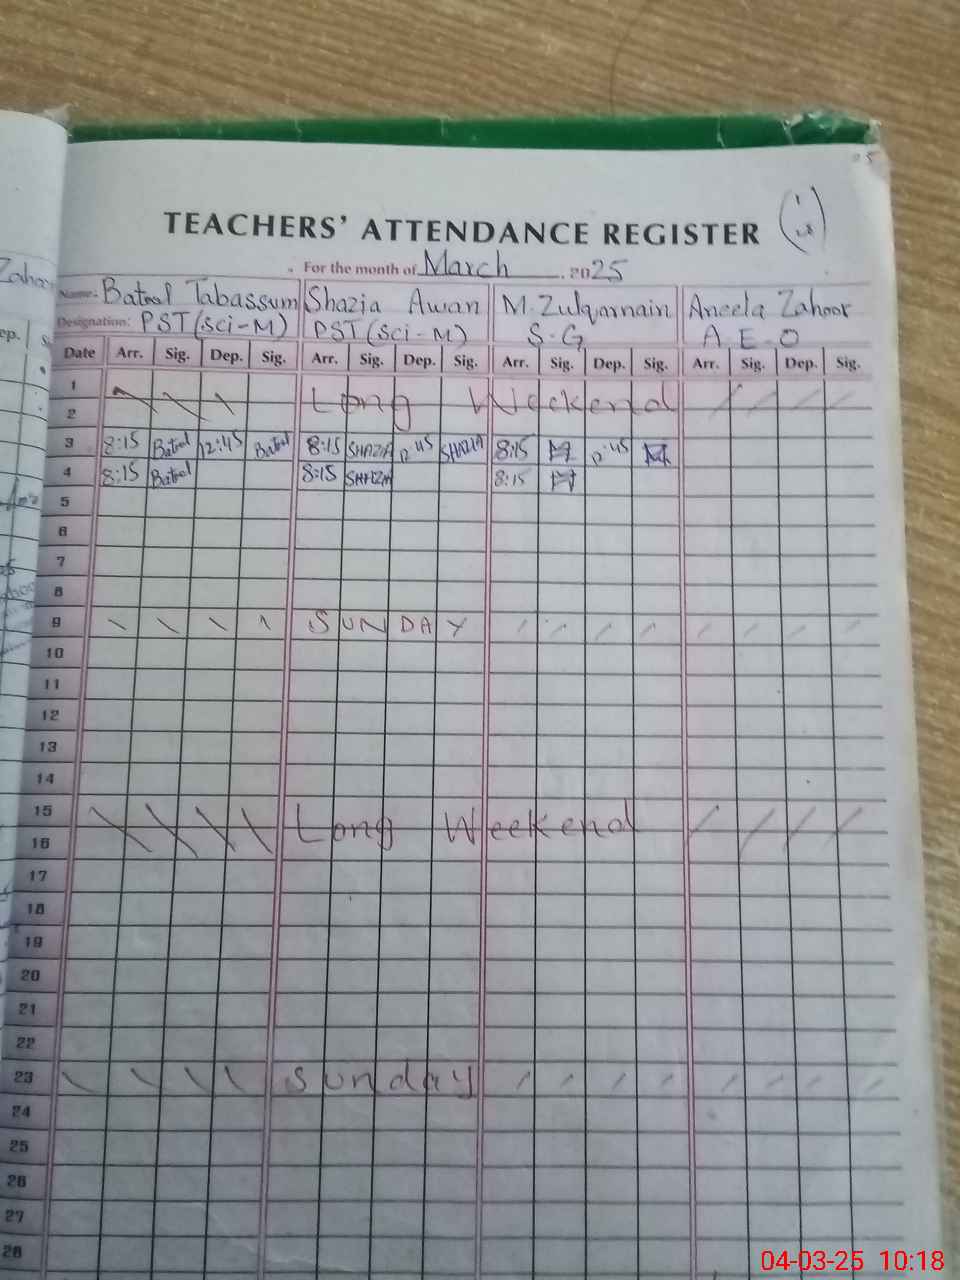 TEACHERS' ATTENDANCE REGISTER
For the month of March 2025
Name: Batool Tabassum Shazia Awan M. Zulqarnain Aneela Zahoor
Designation: PST(sci-M) PST(sci-M) S.G A.E.O
Date Arr. Sig. Dep. Sig. Arr. Sig. Dep. Sig. Arr. Sig. Dep. Sig. Arr. Sig. Dep. Sig.
1
Long Weekend
2
3 8:15 Batool 12:45 Batool 8:15 SHAZIA 12:45 SHAZIA 8:15 12:45
4 8:15 Batool 8:15 SHAZIA 8:15
5
6
7
8
9 SUNDAY
10
11
12
13
14
15
Long Weekend
16
17
18
19
20
21
22
23 Sunday
24
25
26
27
28
04-03-25 10:18